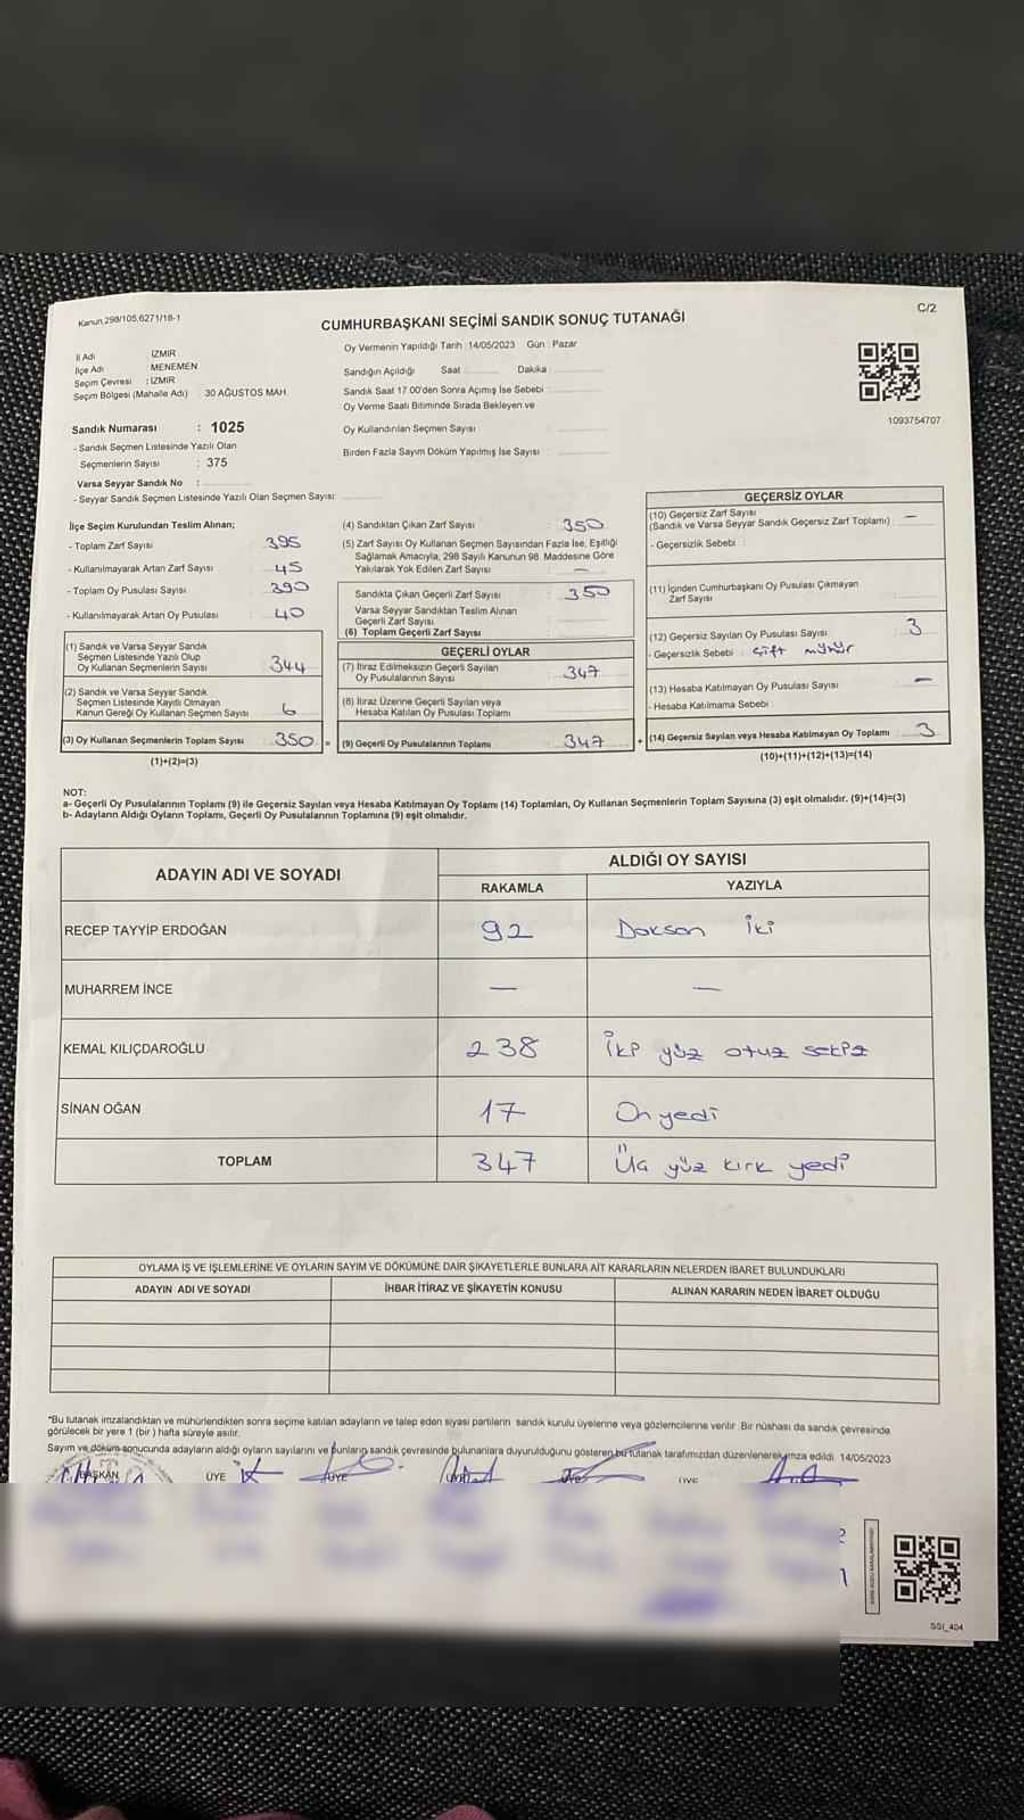 Kanun 298/105,6271/18-1
C/2
CUMHURBAŞKANI SEÇİMİ SANDIK SONUÇ TUTANAĞI
İl Adı : İZMİR
İlçe Adı : MENEMEN
Seçim Çevresi : İZMİR
Seçim Bölgesi (Mahalle Adı) 30 AĞUSTOS MAH.
Sandık Numarası : 1025
- Sandık Seçmen Listesinde Yazılı Olan
Seçmenlerin Sayısı : 375
Varsa Seyyar Sandık No :
- Seyyar Sandık Seçmen Listesinde Yazılı Olan Seçmen Sayısı:
Oy Vermenin Yapıldığı Tarih : 14/05/2023 Gün : Pazar
Sandığın Açıldığı Saat Dakika
Sandık Saat 17.00'den Sonra Açımış İse Sebebi :
Oy Verme Saati Bitiminde Sırada Bekleyen ve
Oy Kullandırılan Seçmen Sayısı
Birden Fazla Sayım Döküm Yapılmış İse Sayısı
1093754707
İlçe Seçim Kurulundan Teslim Alınan;
- Toplam Zarf Sayısı 395
- Kullanılmayarak Artan Zarf Sayısı 45
- Toplam Oy Pusulası Sayısı 390
- Kullanılmayarak Artan Oy Pusulası 40
(1) Sandık ve Varsa Seyyar Sandık
Seçmen Listesinde Yazılı Olup
Oy Kullanan Seçmenlerin Sayısı 344
(2) Sandık ve Varsa Seyyar Sandık
Seçmen Listesinde Kayıtlı Olmayan
Kanun Gereği Oy Kullanan Seçmen Sayısı 6
(3) Oy Kullanan Seçmenlerin Toplam Sayısı 350 =
(1)+(2)=(3)
(4) Sandıktan Çıkan Zarf Sayısı : 350
(5) Zarf Sayısı Oy Kullanan Seçmen Sayısından Fazla İse, Eşitliği
Sağlamak Amacıyla, 298 Sayılı Kanunun 98. Maddesine Göre
Yakılarak Yok Edilen Zarf Sayısı : —
Sandıkta Çıkan Geçerli Zarf Sayısı : 350
Varsa Seyyar Sandıktan Teslim Alınan
Geçerli Zarf Sayısı
(6) Toplam Geçerli Zarf Sayısı
GEÇERLİ OYLAR
(7) İtiraz Edilmeksizin Geçerli Sayılan
Oy Pusulalarının Sayısı : 347
(8) İtiraz Üzerine Geçerli Sayılan veya
Hesaba Katılan Oy Pusulası Toplamı
(9) Geçerli Oy Pusulalarının Toplamı : 347 +
GEÇERSİZ OYLAR
(10) Geçersiz Zarf Sayısı
(Sandık ve Varsa Seyyar Sandık Geçersiz Zarf Toplamı) —
- Geçersizlik Sebebi :
(11) İçinden Cumhurbaşkanı Oy Pusulası Çıkmayan
Zarf Sayısı
(12) Geçersiz Sayılan Oy Pusulası Sayısı 3
- Geçersizlik Sebebi : Çift mühür
(13) Hesaba Katılmayan Oy Pusulası Sayısı —
- Hesaba Katılmama Sebebi :
(14) Geçersiz Sayılan veya Hesaba Katılmayan Oy Toplamı 3
(10)+(11)+(12)+(13)=(14)
NOT:
a- Geçerli Oy Pusulalarının Toplamı (9) ile Geçersiz Sayılan veya Hesaba Katılmayan Oy Toplamı (14) Toplamları, Oy Kullanan Seçmenlerin Toplam Sayısına (3) eşit olmalıdır. (9)+(14)=(3)
b- Adayların Aldığı Oyların Toplamı, Geçerli Oy Pusulalarının Toplamına (9) eşit olmalıdır.
ADAYIN ADI VE SOYADI
ALDIĞI OY SAYISI
RAKAMLA YAZIYLA
RECEP TAYYİP ERDOĞAN 92 Doksan iki
MUHARREM İNCE — —
KEMAL KILIÇDAROĞLU 238 İki yüz otuz sekiz
SİNAN OĞAN 17 On yedi
TOPLAM 347 Üç yüz kırk yedi
OYLAMA İŞ VE İŞLEMLERİNE VE OYLARIN SAYIM VE DÖKÜMÜNE DAİR ŞİKAYETLERLE BUNLARA AİT KARARLARIN NELERDEN İBARET BULUNDUKLARI
ADAYIN ADI VE SOYADI İHBAR İTİRAZ VE ŞİKAYETİN KONUSU ALINAN KARARIN NEDEN İBARET OLDUĞU
*Bu tutanak imzalandıktan ve mühürlendikten sonra seçime katılan adayların ve talep eden siyasi partilerin sandık kurulu üyelerine veya gözlemcilerine verilir. Bir nüshası da sandık çevresinde
görülecek bir yere 1 (bir) hafta süreyle asılır.
Sayım ve döküm sonucunda adayların aldığı oyların sayılarını ve bunların sandık çevresinde bulunanlara duyurulduğunu gösteren bu tutanak tarafımızdan düzenlenerek imza edildi. 14/05/2023
BAŞKAN ÜYE ÜYE
SSI_404